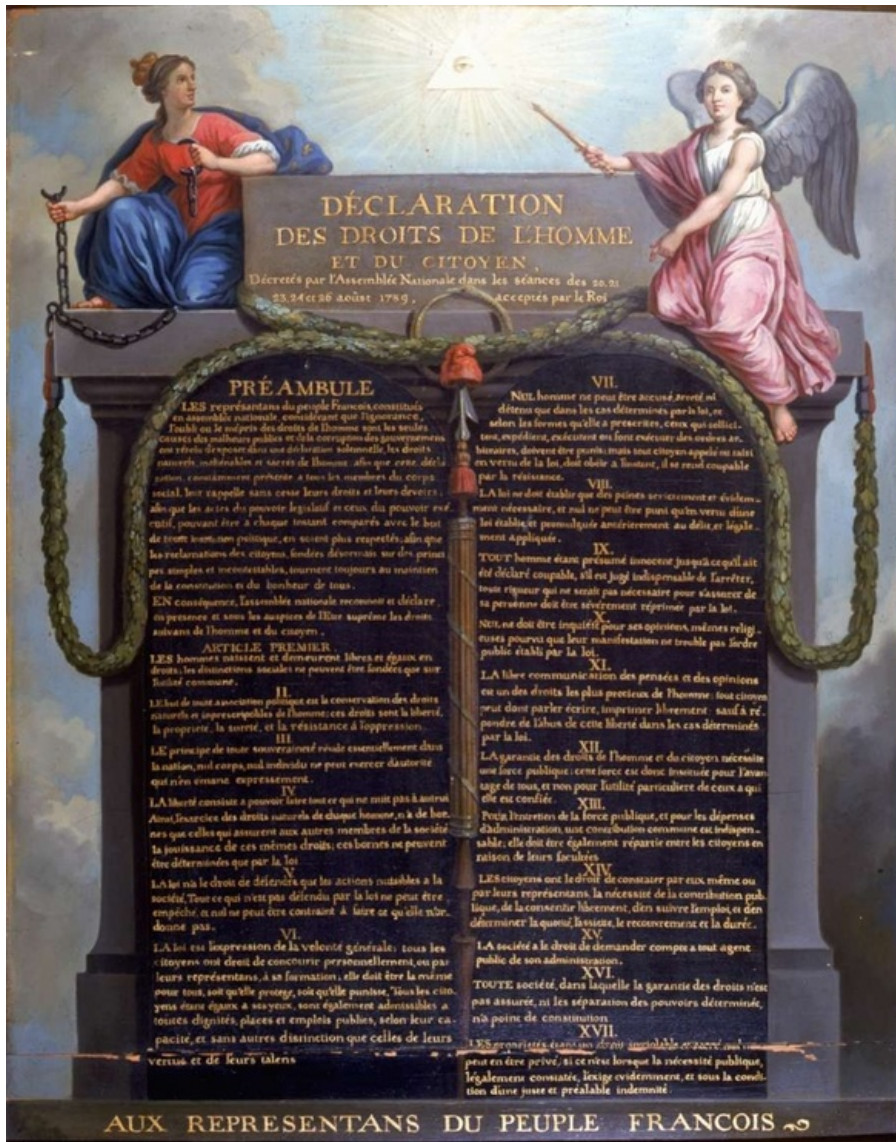 DÉCLARATION
DES DROITS DE L'HOMME
ET DU CITOYEN,
Décretés par l'Assemblée Nationale dans les séances des 20, 21
23, 24 et 26 aoûst 1789, acceptés par le Roi
PRÉAMBULE
LES représentans du peuple Francois, constitués
en assemblée nationale, considérant que l'ignorance,
l'oubli ou le mépris des droits de l'homme sont les seules
causes des malheurs publics et de la corruption des gouvernemens
ont résolu d'exposer dans une déclaration solemnelle, les droits
naturels, inaliénables et sacrés de l'homme, afin que cette décla
ration, constamment présente a tous les membres du corps
social, leur rappelle sans cesse leurs droits et leurs devoirs,
afin que les actes du pouvoir législatif et ceux du pouvoir exé
cutif, pouvant être à chaque instant comparés avec le but
de toute institution politique, en soient plus respectés, afin que
les reclamations des citoyens, fondées désormais sur des princi
pes simples et incontestables, tournent toujours au maintien
de la constitution et du bonheur de tous.
EN conséquence, l'assemblée nationale reconnoit et déclare
en presence et sous les auspices de l'Etre suprême les droits
suivans de l'homme et du citoyen.
ARTICLE PREMIER.
LES hommes naissent et demeurent libres et égaux en
droits; les distinctions sociales ne peuvent être fondées que sur
l'utilité commune.
II.
LE but de toute association politique est la conservation des droits
naturels et inprescriptibles de l'homme; ces droits sont la liberté,
la propriété, la sureté, et la résistance à l'oppression.
III.
LE principe de toute souveraineté réside essentiellement dans
la nation, nul corps, nul individu ne peut exercer d'autorité
qui n'en émane expressement.
IV.
LA liberté consiste a pouvoir faire tout ce qui ne nuit pas à autrui
Ainsi, l'exercice des droits naturels de chaque homme, n'a de bor-
nes que celles qui assurent aux autres membres de la société
la jouissance de ces mêmes droits; ces bornes ne peuvent
être déterminées que par la loi
V.
LA loi n'a le droit de défendre que les actions nuisibles a la
société. Tout ce qui n'est pas défendu par la loi ne peut être
empêché, et nul ne peut être contraint à faire ce qu'elle n'or-
donne pas.
VI.
LA loi est l'expression de la volonté générale; tous les
citoyens ont droit de concourir personnellement, ou par
leurs représentans, à sa formation; elle doit être la même
pour tous, soit qu'elle protege, soit qu'elle punisse, Tous les cito
yens étant égaux à ses yeux, sont également admissibles a
toutes dignités, places et emplois publics, selon leur ca-
pacité, et sans autres distinction que celles de leurs
vertus et de leurs talens
VII.
NUL homme ne peut être accusé, arreté, ni
détenu que dans les cas déterminés par la loi, et
selon les formes qu'elle a prescrites, ceux qui sollici-
tent, expédient, exécutent ou font exécuter des ordres ar-
bitraires, doivent être punis; mais tout citoyen appelé ou saisi
en vertu de la loi, doit obéir a l'instant, il se rend coupable
par la résistance.
VIII.
LA loi ne doit établir que des peines strictement et évidem-
ment nécessaire, et nul ne peut être puni qu'en vertu d'une
loi établie et promulguée antérierement au délit, et légale-
ment appliquée.
IX.
TOUT homme étant présumé innocent jusqu'a ce qu'il ait
été déclaré coupable, s'il est jugé indispensable de l'arrêter,
toute rigueur qui ne serait pas nécessaire pour s'assurer de
sa personne doit être sévèrement réprimée par la loi.
X.
NUL ne doit être inquiété pour ses opinions, mêmes religi-
euses pourvu que leur manifestation ne trouble pas l'ordre
public établi par la loi.
XI.
LA libre communication des pensées et des opinions
est un des droits les plus precieux de l'homme; tout citoyen
peut dont parler écrire, imprimer librement: sauf à ré-
pondre de l'abus de cette liberté dans les cas déterminés
par la loi.
XII.
LA garantie des droits de l'homme et du citoyen nécessite
une force publique; cette force est donc instituée pour l'avan
tage de tous, et non pour l'utilité particuliere de ceux a qui
elle est confiée.
XIII.
Pour l'entretien de la force publique, et pour les dépenses
d'administration, une contribution commune est indispen-
sable; elle doit être également répartie entre les citoyens en
raison de leurs facultées
XIV.
LES citoyens ont le droit de constater par eux même ou
par leurs représentans, la nécessité de la contribution pub-
lique, de la consentir librement, d'en suivre l'emploi, et d'en
déterminer la quotité, l'assiete, le recouvrement et la durée.
XV.
LA société a le droit de demander compte a tout agent
public de son administration.
XVI.
TOUTE société, dans laquelle la garantie des droits n'est
pas assurée, ni les séparation des pouvoirs déterminée,
n'a point de constitution
XVII.
LES propriétés étant un droit inviolable et sacré, nul ne
peut en être privé, si ce n'est lorsque la nécessité publique,
légalement constatée, l'exige evidemment, et sous la condi-
tion d'une juste et préalable indemnité.
AUX REPRESENTANS DU PEUPLE FRANCOIS